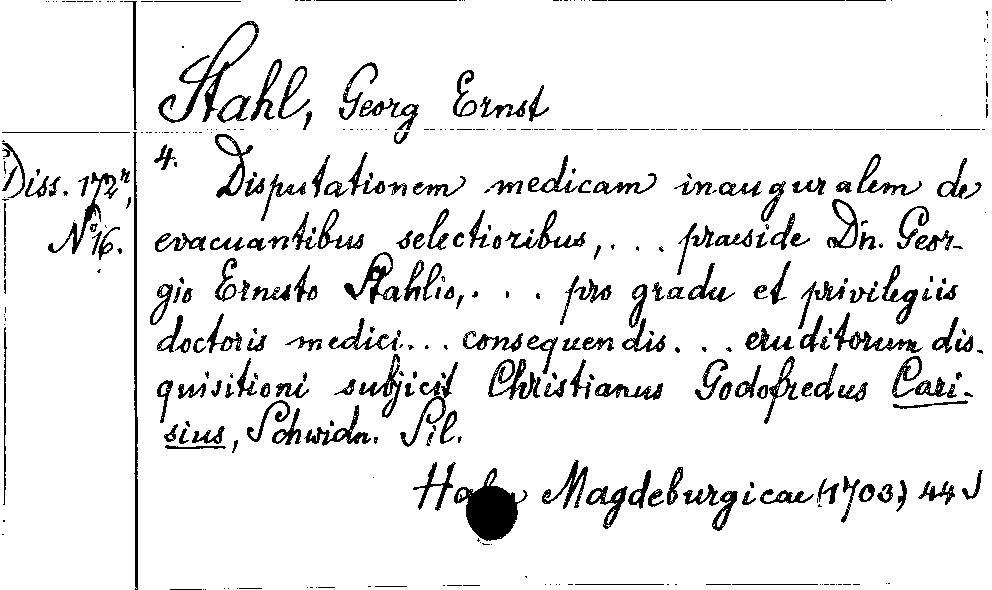 Stahl, Georg Ernst
4.
Diss. 172
No 16.
Disputationem medicam inauguralem de
evacuantibus selectioribus, . . . praeside Dn. Geor-
gio Ernesto Stahlio, . . . pro gradu et privilegiis
doctoris medici . . . consequendis . . . eruditorum dis-
quisitioni subjicit Christianus Godofredus Cari-
sius, Schwidn. Sil.
Magdeburgicae (1703) 44 S